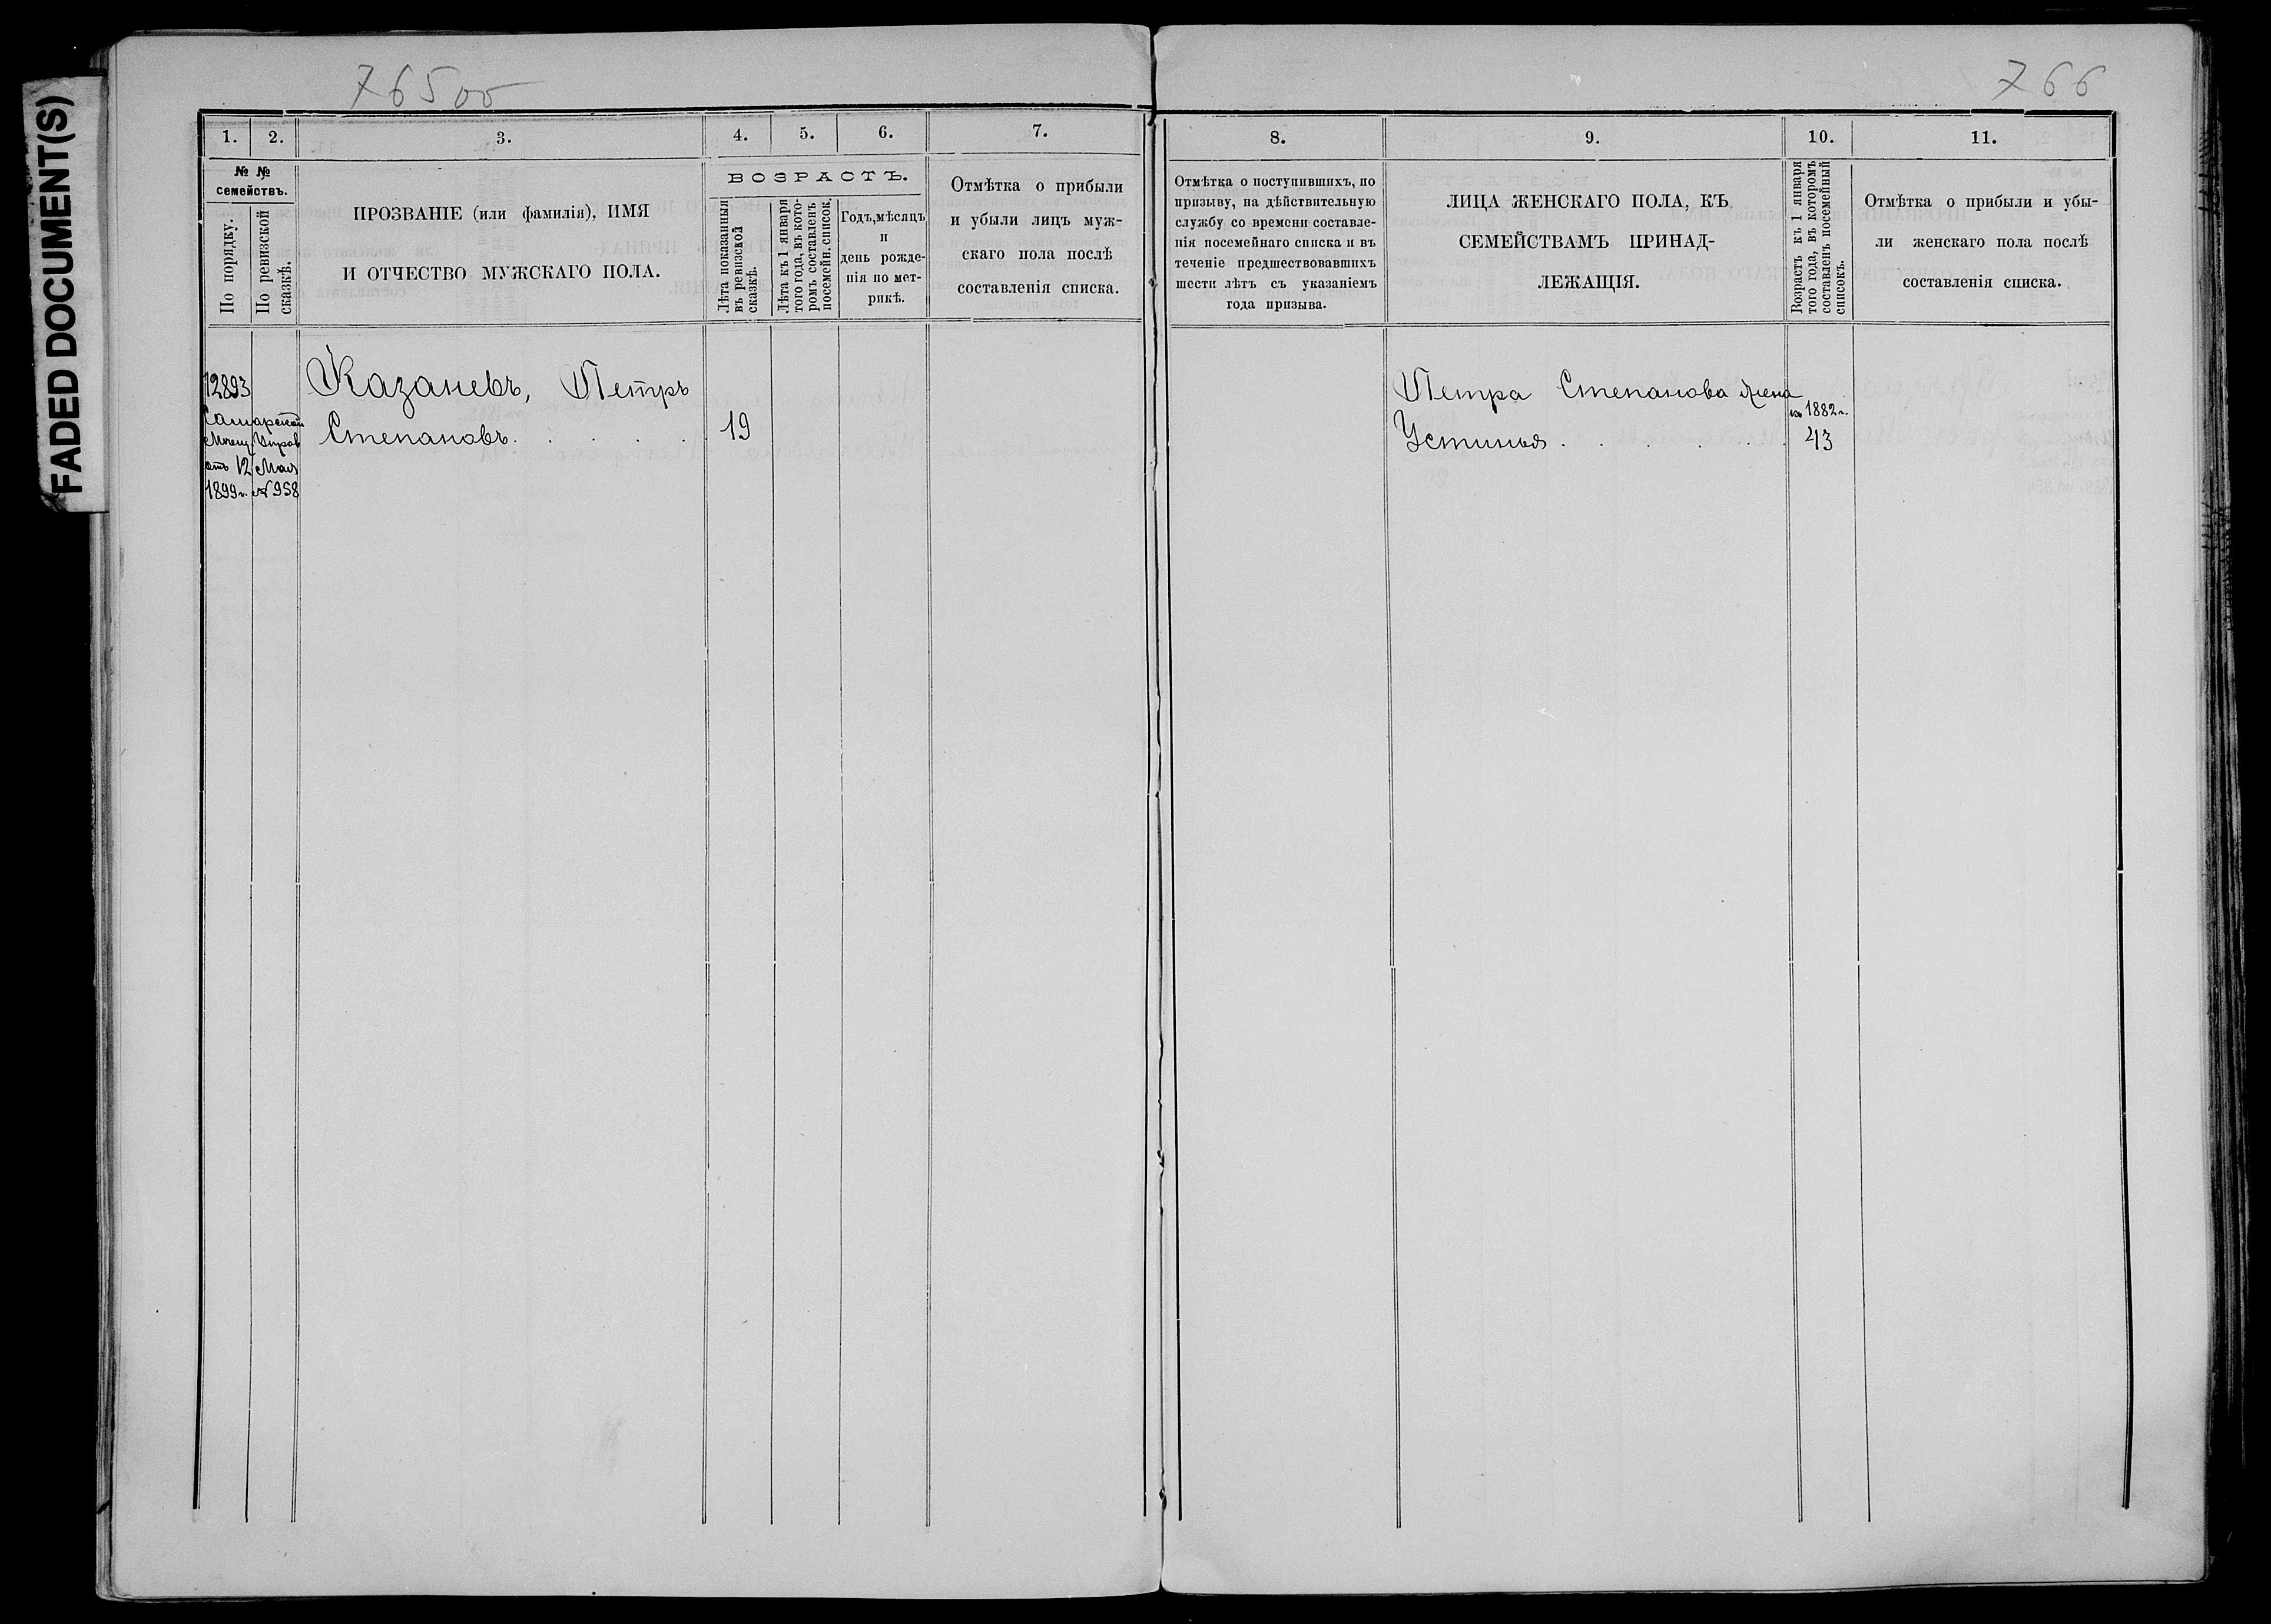 FADED DOCUMENT(S)
765об
766
1.
2.
3.
4.
5.
6.
7.
№ №
семействъ.
По порядку.
По ревизской
сказкѣ.
ПРОЗВАНІЕ (или фамилія), ИМЯ
И ОТЧЕСТВО МУЖСКАГО ПОЛА.
ВОЗРАСТЪ.
Лѣта показанныя
въ ревизской
сказкѣ.
Лѣта къ 1 января
того года, въ кото-
ромъ составленъ
посемейн. список.
Годъ, мѣсяцъ
и
день рожде-
нія по мет-
рикѣ.
Отмѣтка о прибыли
и убыли лицъ муж-
скаго пола послѣ
составленія списка.
12893
Самарской
Мѣщ Управ
отъ 12 Мая
1899 г. № 958
Казаневъ, Петръ
Степановъ. . . . .
19
8.
9.
10.
11.
Отмѣтка о поступившихъ, по
призыву, на дѣйствительную
службу со времени составле-
нія посемейнаго списка и въ
теченіе предшествовавшихъ
шести лѣтъ съ указаніемъ
года призыва.
ЛИЦА ЖЕНСКАГО ПОЛА, КЪ
СЕМЕЙСТВАМЪ ПРИНАД-
ЛЕЖАЩІЯ.
Возрастъ къ 1 января
того года, въ которомъ
составленъ посемейный
списокъ.
Отмѣтка о прибыли и убы-
ли женскаго пола послѣ
составленія списка.
Петра Степанова жена
Устинья . . . . . .
къ 1882 г.
43